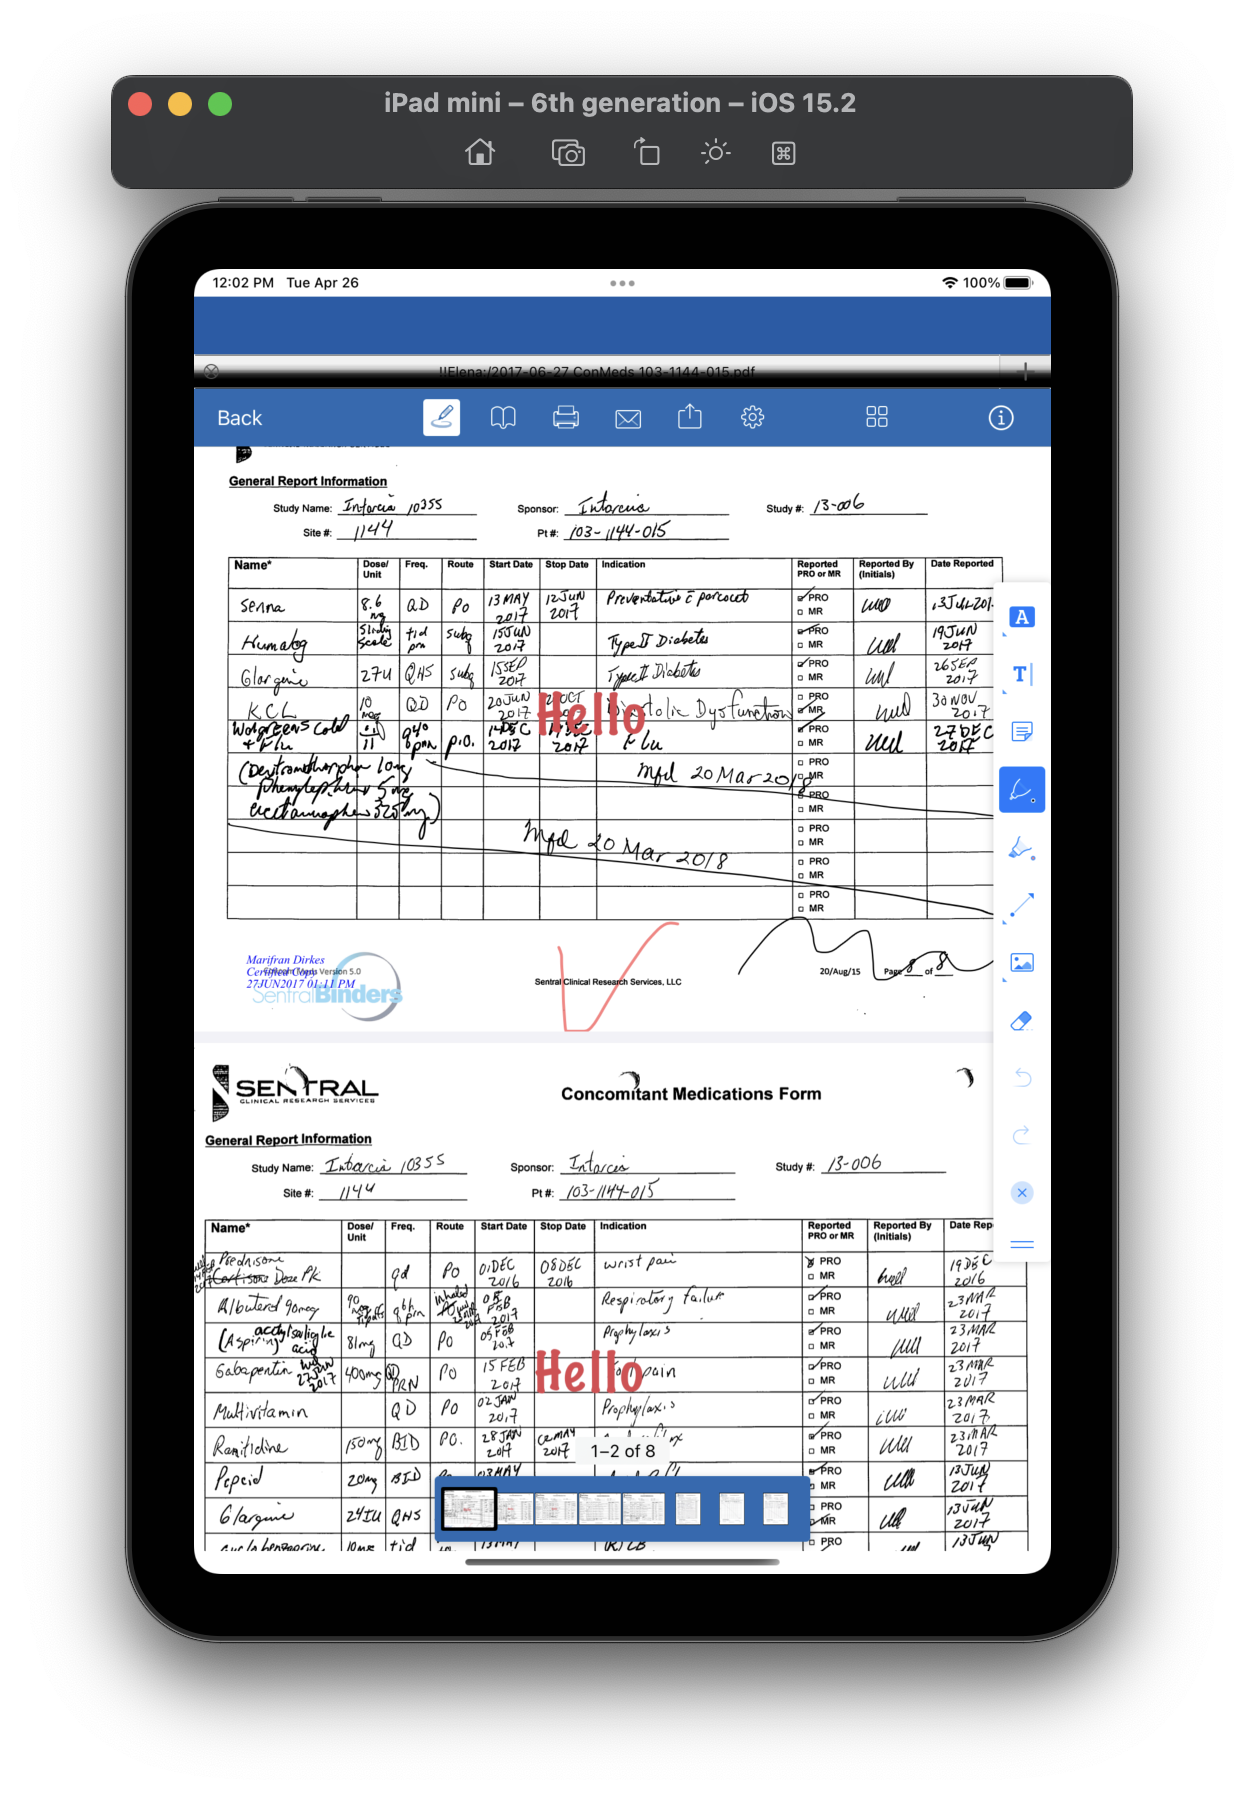 iPad mini – 6th generation – iOS 15.2
12:02 PM Tue Apr 26
100%
!!Elena:/2017-06-27 ConMeds 103-1144-015.pdf
Back
General Report Information
Study Name: Intarcia 10355 Sponsor: Intarcia Study #: 13-006
Site #: 1144 Pt #: 103-1144-015
Name* Dose/ Unit Freq. Route Start Date Stop Date Indication Reported PRO or MR Reported By (Initials) Date Reported
Senna 8.6 mg QD Po 13 MAY 2017 12 Jun 2017 Preventative c percocet PRO MR 13 JUL 201
Humalog Sliding Scale tid prn subq 15 JUN 2017 Type II Diabetes PRO MR 19 JUN 2017
Glargine 27u QHS subq 15 SEP 2017 Type II Diabetes PRO MR 26 SEP 2017
KCL 10 meq QD Po 20 JUN 2017 OCT Diastolic Dysfunction PRO MR 30 NOV 2017
Hello
Walgreens Cold + Flu prn p.o. 14 DEC 2017 2017 Flu PRO MR 27 DEC 2017
(Dextromethorphan 10mg mfd 20 Mar 2018 PRO MR
phenylephrine 5 mg PRO MR
acetaminophen 325mg)
mfd 20 Mar 2018 PRO MR
PRO MR
PRO MR
Marifran Dirkes
Certified Copy
Version 5.0
27JUN2017 01:11 PM
SentralBinders
Sentral Clinical Research Services, LLC
20/Aug/15 Page 8 of 8
SENTRAL
CLINICAL RESEARCH SERVICES
Concomitant Medications Form
General Report Information
Study Name: Intarcia 10355 Sponsor: Intarcia Study #: 13-006
Site #: 1144 Pt #: 103-1144-015
Name* Dose/ Unit Freq. Route Start Date Stop Date Indication Reported PRO or MR Reported By (Initials) Date Rep
Prednisone Cortisone Dose PK qd Po 01 DEC 2016 08 DEC 2016 wrist pain PRO MR 19 DEC 2016
Albuterol 90mcg 90 q6h prn inhaled FEB 2017 Respiratory failure PRO MR 23 MAR 2017
(Aspirin) acetylsalicylic acid 81mg QD Po 05 FEB 2017 Prophylaxis PRO MR 23 MAR 2017
Gabapentin 27 JUN 2017 400mg QD PRN Po 15 FEB 2017 pain PRO MR 23 MAR 2017
Hello
Multivitamin QD Po 02 JAN 2017 Prophylaxis PRO MR 23 MAR 2017
Ranitidine 150mg BID PO. 28 JAN 2017 MAY 2017 PRO MR 23 MAR 2017
1–2 of 8
Pepcid 20mg BID 03 MAY PRO MR 13 JUN 2017
Glargine 24IU QHS PRO MR 13 JUN 2017
cyclobenzaprine 10mg tid PRO 13 JUN